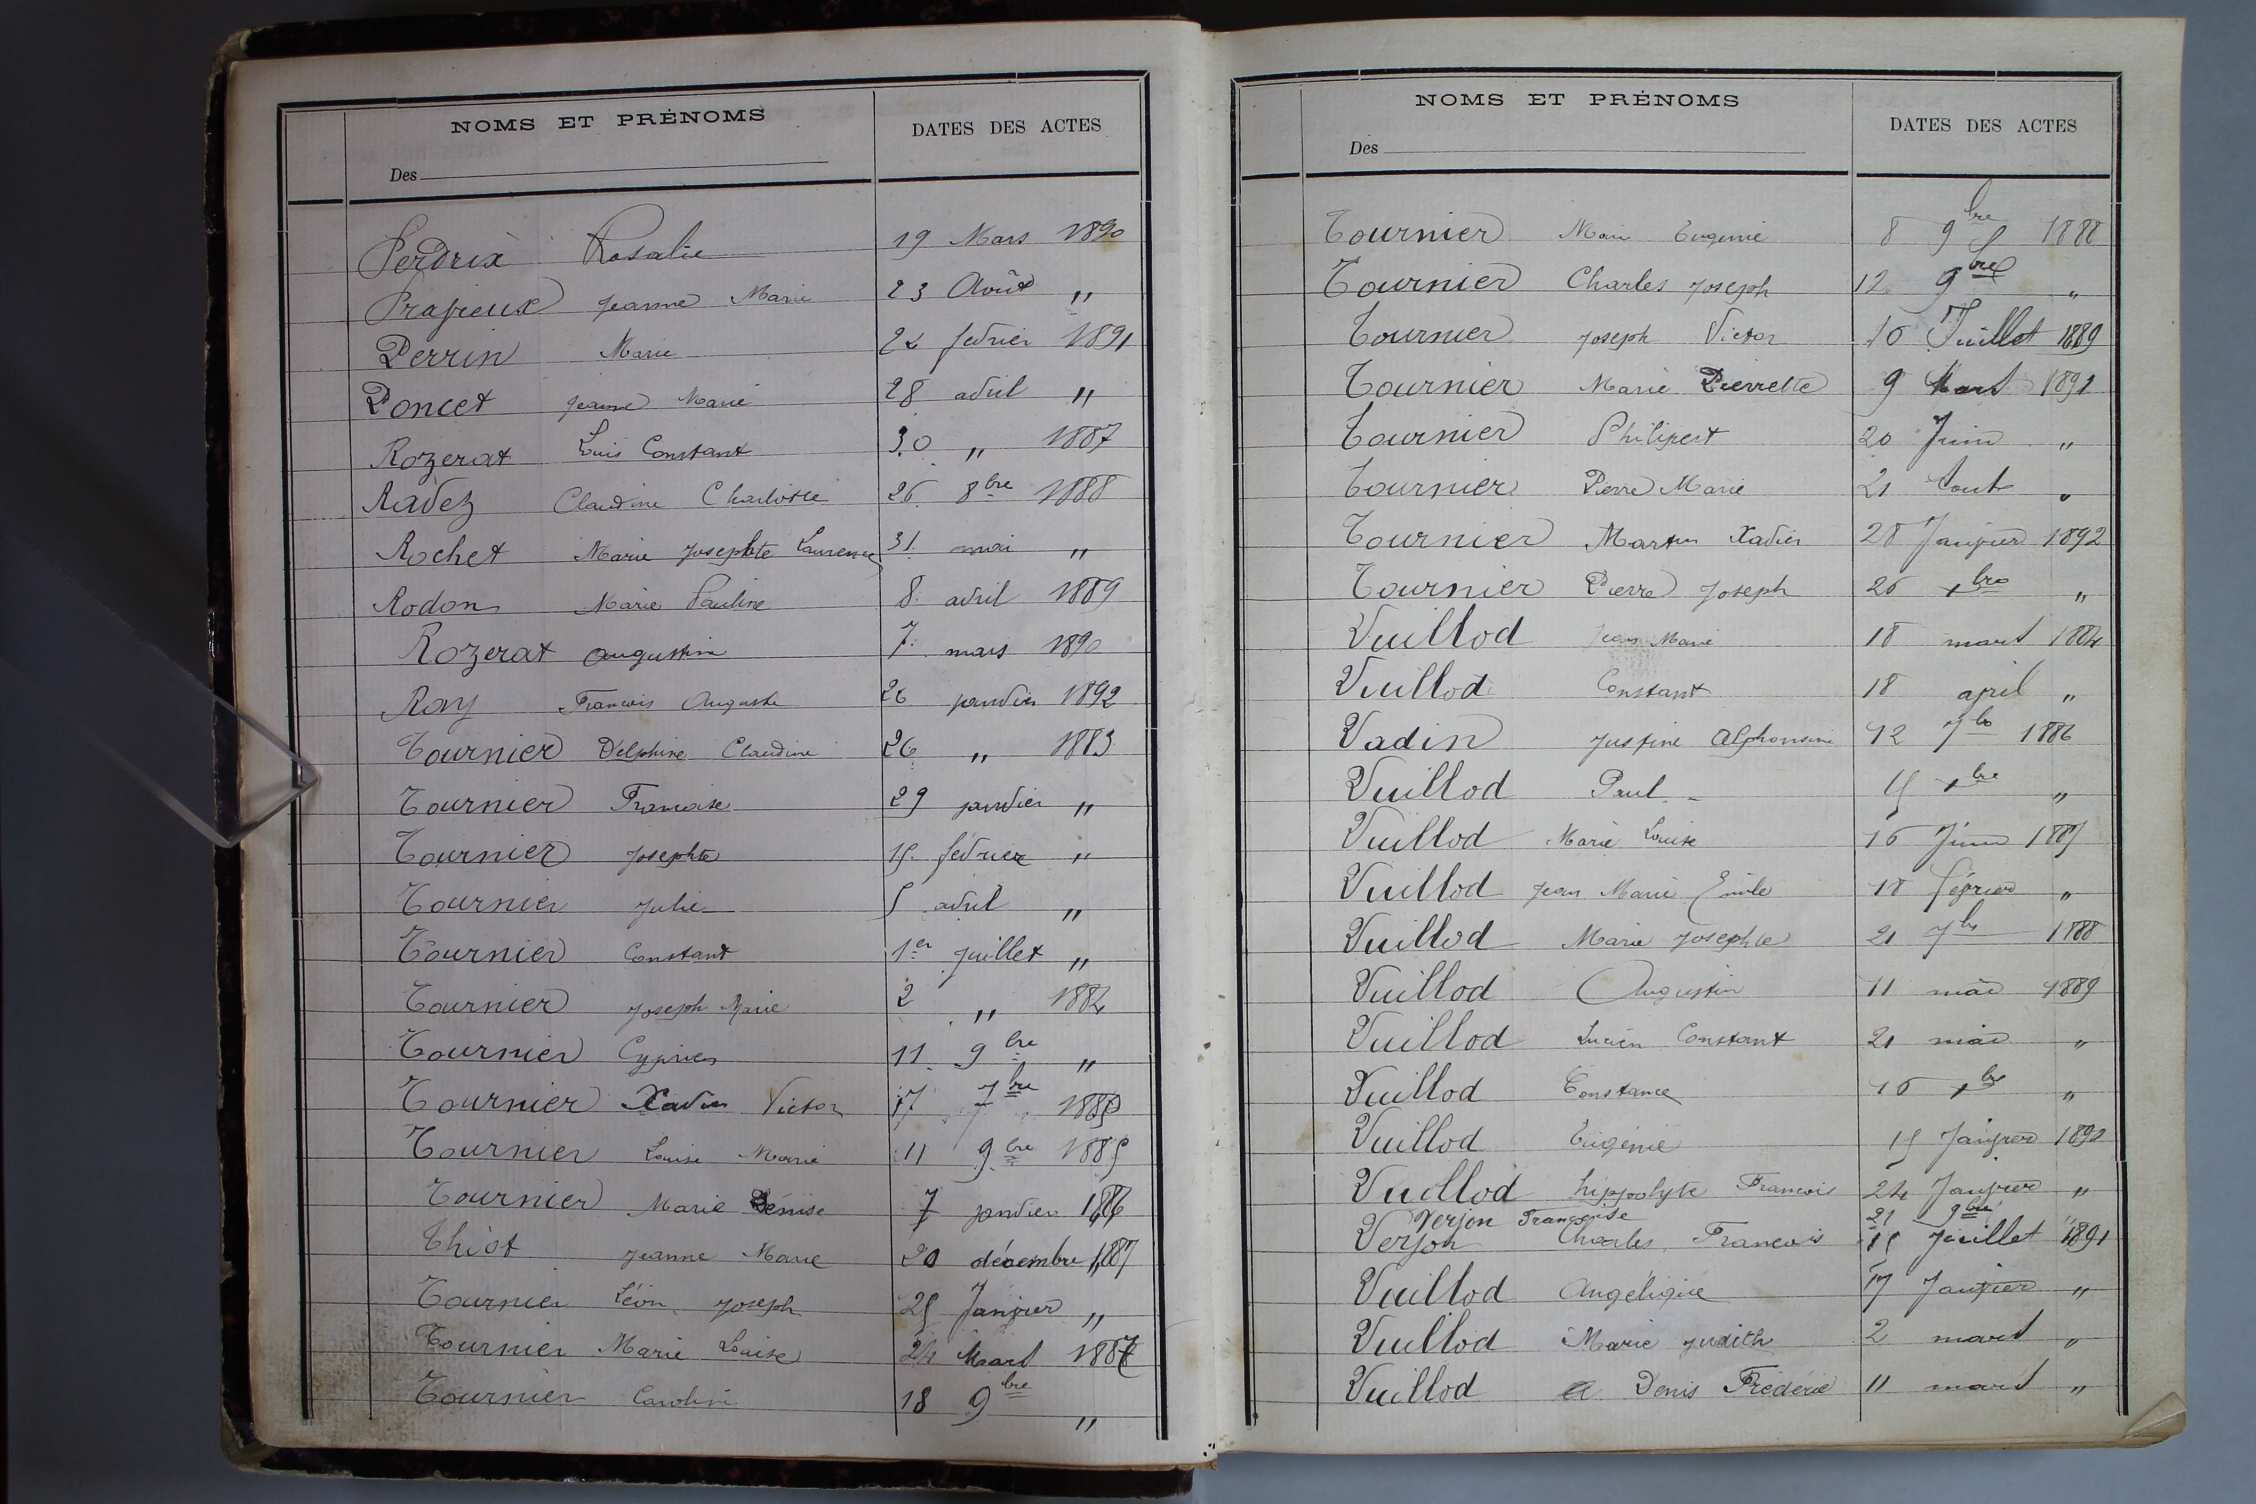 NOMS ET PRÉNOMS DATES DES ACTES
Des
Perdrix Rosalie 19 Mars 1890
Prafieux Jeanne Marie 23 Août "
Perrin Marie 22 fevrier 1891
Poncet Jeanne Marie 28 avril "
Rozerat Louis Constant 30 " 1887
Ravez Claudine Charlotte 26 8bre 1888
Rochet Marie Josephte Laurence 31 mai "
Rodon Marie Pauline 8 avril 1889
Rozerat augustin 7 mars 1890
Roy Francois Auguste 26 janvier 1892
Tournier Delphine Claudine 26 " 1883
Tournier Francoise 29 janvier "
Tournier Josephte 15 février "
Tournier Julie 5 avril "
Tournier Constant 1er juillet "
Tournier Joseph Marie 2 " 1884
Tournier Cyprien 11 9bre "
Tournier Xavier Victor 17 7bre
Tournier Louise Marie 11 9bre 1885
Tournier Marie Dénise 7 janvier 1886
Thiot Jeanne Marie 20 décembre 1887
Tournier Léon Joseph 25 Janvier "
Tournier Marie Louise 24 Mars 1887
Tournier Caroline 18 9bre "
NOMS ET PRÉNOMS DATES DES ACTES
Des
Tournier Marie Eugenie 8 9bre 1888
Tournier Charles Joseph 12 9bre "
Tournier Joseph Victor 10 Juillet 1889
Tournier Marie Pierrette 9 Mars 1891
Tournier Philipert 20 Juin "
Tournier Pierre Marie 21 Aout "
Tournier Martin Xavier 28 Janvier 1892
Tournier Pierre Joseph 26 xbre "
Vuillod Jean Marie 18 mars 1884
Vuillod Constant 18 april "
Vadin Justine Alphonsine 12 7bre 1886
Vuillod Paul 15 xbre "
Vuillod Marie Louise 16 Juin 1887
Vuillod Jean Marie Emile 18 février "
Vuillod Marie Josephte 21 7bre 1888
Vuillod Augustin 11 mai 1889
Vuillod Lucien Constant 21 mai "
Vuillod Constance 16 xbre "
Vuillod Eugénie 15 Janvier 1890
Vuillod hippolyte Francois 24 Janvier "
Verjon Françoise 21 9bre "
Verjon Charles Francois 15 Juillet 1891
Vuillod Angélique 17 Janvier "
Vuillod Marie Judith 2 mars "
Vuillod Denis Fréderic 11 mars "